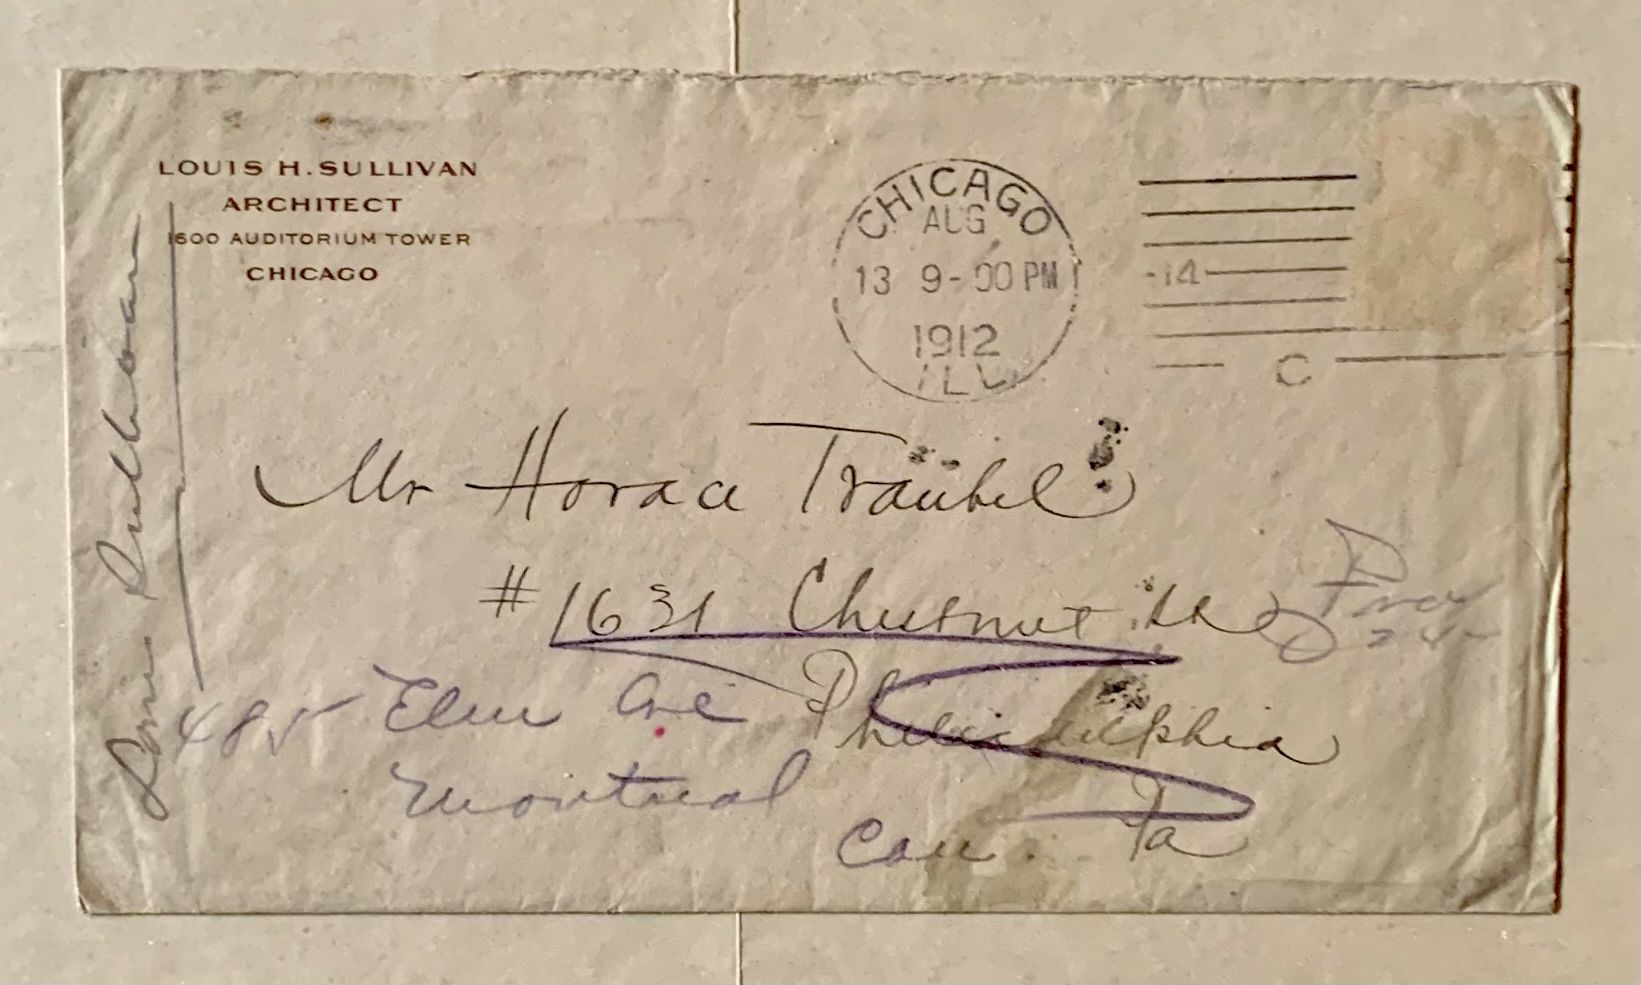 LOUIS H. SULLIVAN
ARCHITECT
1600 AUDITORIUM TOWER
CHICAGO
CHICAGO
AUG
13 9-00 PM
1912
ILL
14
C
Mr Horace Traubel
#1631 Chestnut St
Philadelphia
Pa
485 Elm Ave
Montreal
Can.
Louis Sullivan